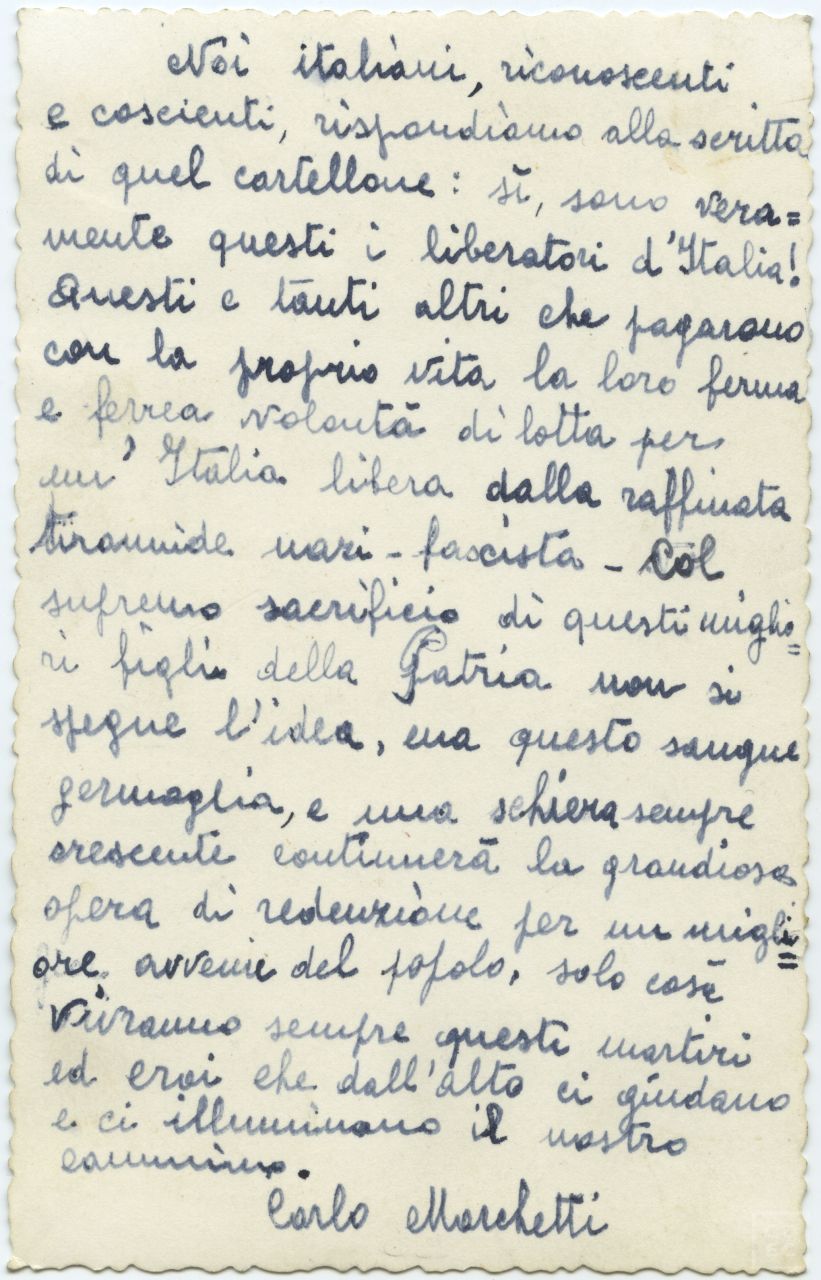 Noi italiani, riconoscenti
e coscienti, rispondiamo alla scritta
di quel cartellone: sì, sono vera=
mente questi i liberatori d'Italia!
Questi e tanti altri che pagarono
con la proprio vita la loro ferma
e ferrea volontà di lotta per
un' Italia libera dalla raffinata
tirannide nazi-fascista - Col
supremo sacrificio di questi miglio=
ri figli della Patria non si
spegne l'idea, ma questo sangue
germoglia, e una schiera sempre
crescente continuerà la grandiosa
opera di redenzione per un migli=
ore avvenire del popolo, solo così
vivranno sempre questi martiri
ed eroi che dall'alto ci guidano
e ci illuminano il nostro
cammino.
Carlo Marchetti